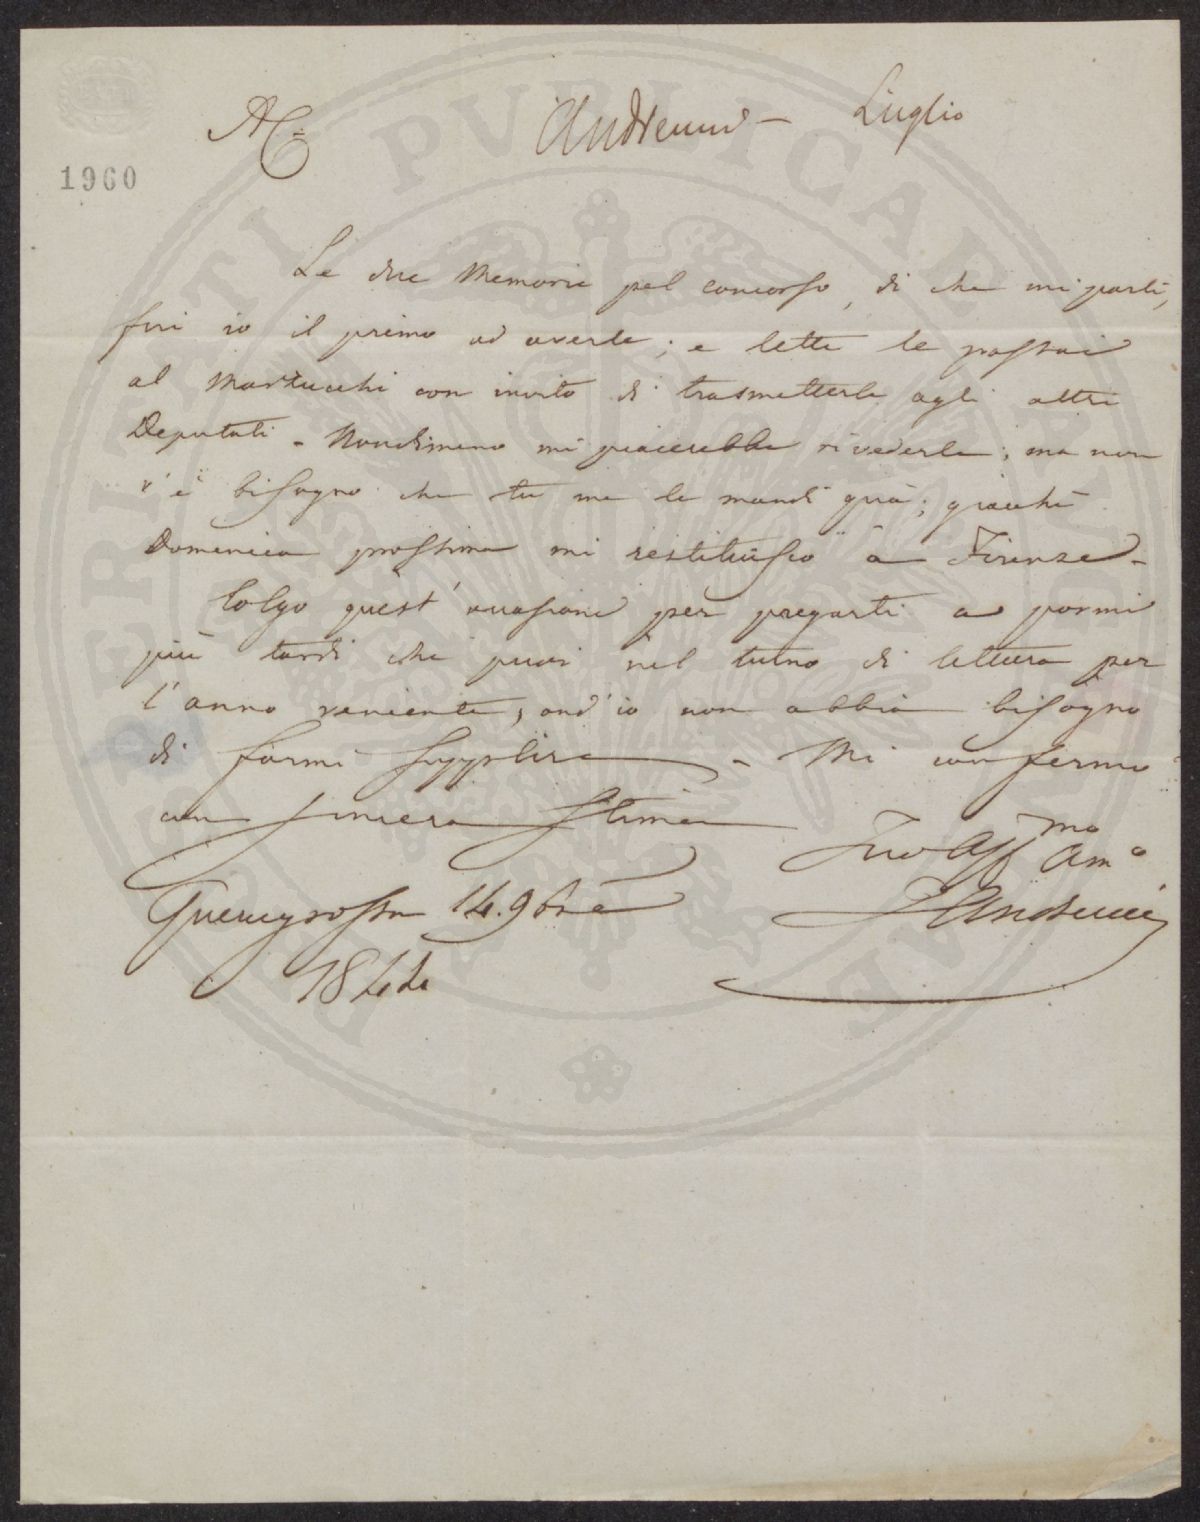 AC. Andreucci - Luglio
1960
Le due Memorie pel concorso, di che mi parli,
fui io il primo ad averle; e lette le passai
al Martucchi con invito di trasmetterle agli altri
Deputati - Nondimeno mi piacerebbe rivederle; ma non
v'è bisogno che tu me le mandi quà; giacchè
Domenica prossima mi restituisco a Firenze -
Colgo quest'occasione per pregarti a pormi
più tardi che puoi nel turno di lettura per
l'anno veniente, ond'io non abbia bisogno
di farmi supplire - Mi confermo
con sincera stima
Tuo Aff.mo Am.o
Andreucci
Quercegrossa 14. 9bre
1844